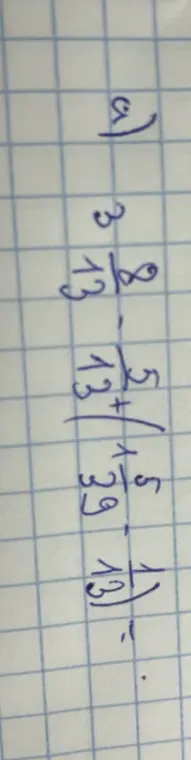 a) 3 8/13 - 5/13 + (1 5/39 - 1/13) =